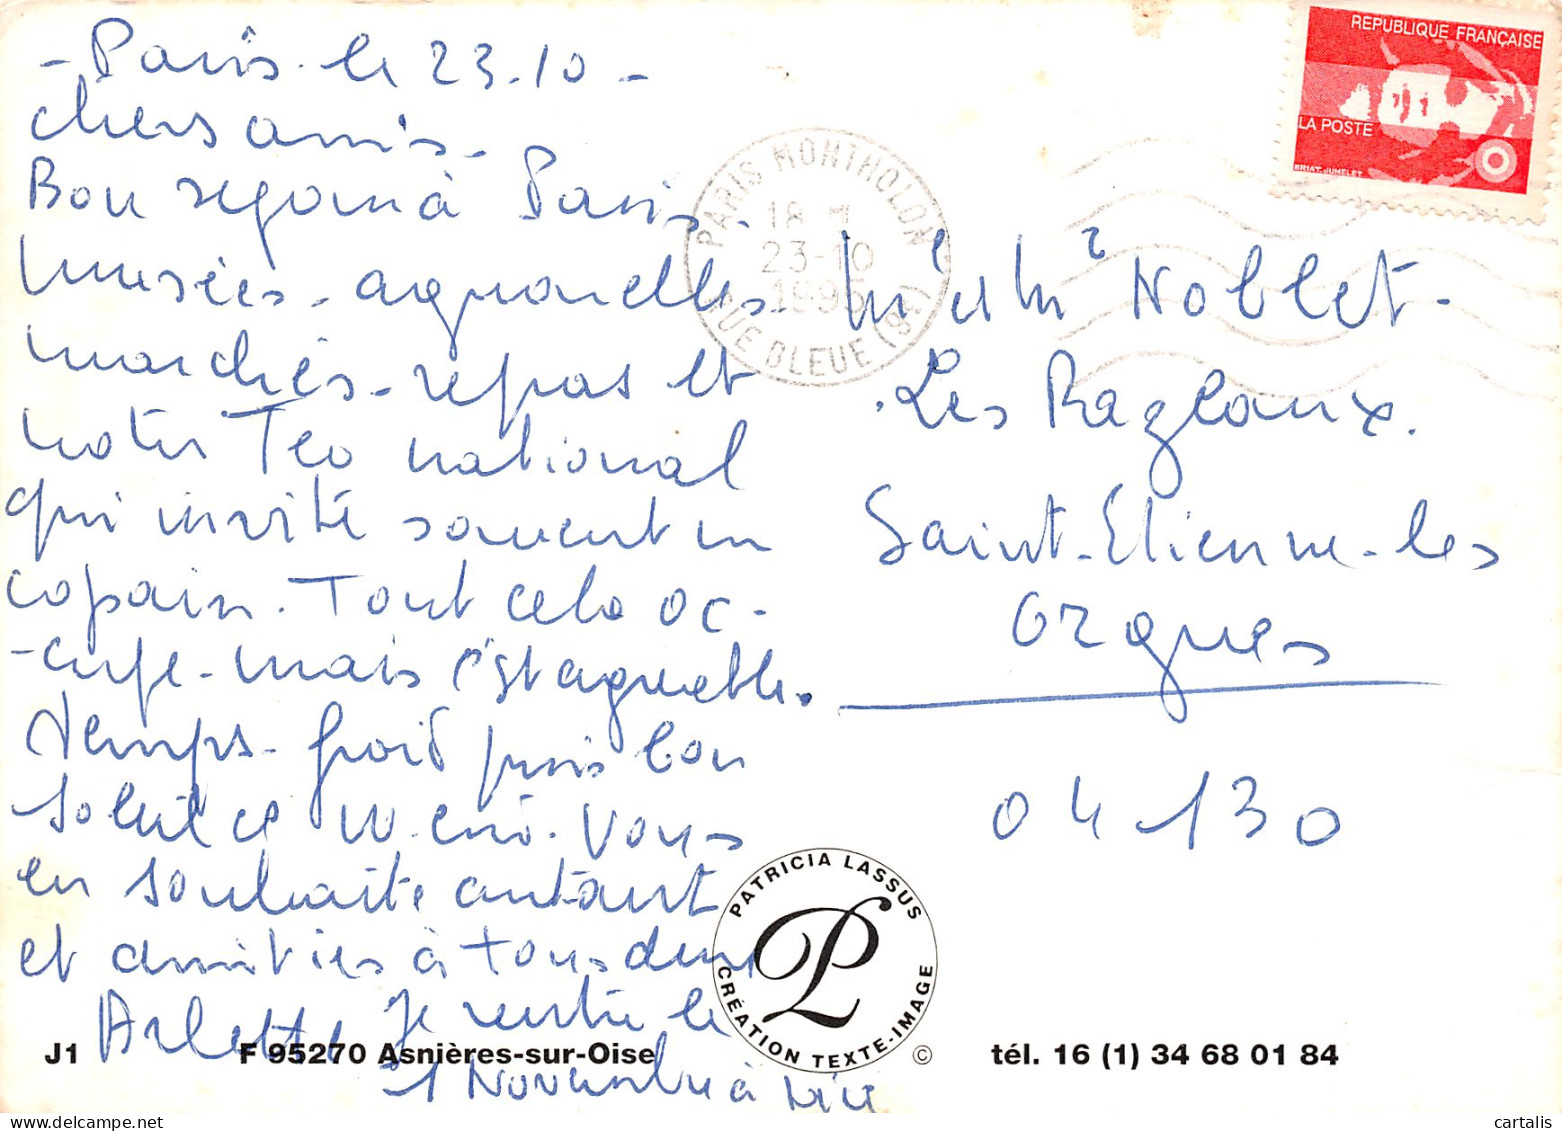 - Paris le 23.10 -
chers amis -
Bon séjour à Paris -
musées - aquarelles -
marchés - repas et
notre Teo national
qui invite souvent un
copain. Tout cela oc-
-cupe - mais c'est agréable.
Temps - froid puis bon
soleil ce W. end. Vous
en souhaite autant
et amitiés à tous deux
Arlette Je rentre le
1 Novembre à Nice
REPUBLIQUE FRANÇAISE
LA POSTE
BRIAT-JUMELET
PARIS MONTHOLON
18 H
23-10
1995
RUE BLEUE (9E)
Mr et Me Noblet -
Les Rageaux.
Saint-Etienne-les
Orgues
04130
PATRICIA LASSUS
CRÉATION TEXTE-IMAGE
©
J1 F 95270 Asnières-sur-Oise tél. 16 (1) 34 68 01 84
cartalis